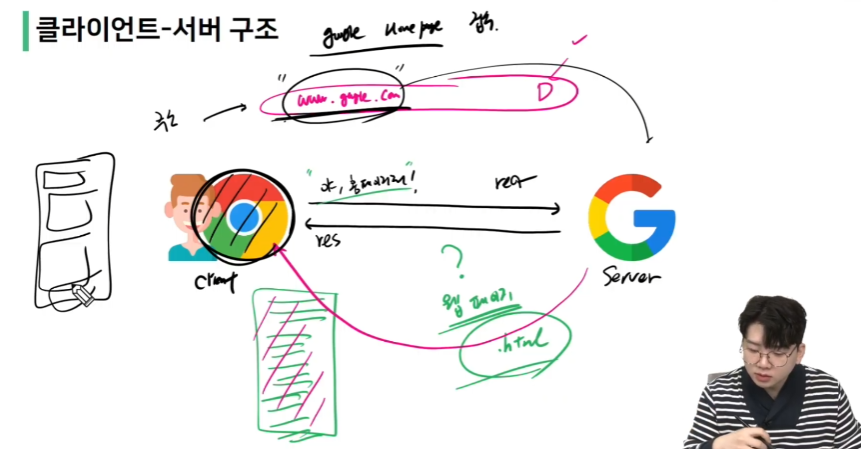 클라이언트-서버 구조
google Home page 접속.
"www.google.com"
주소
"야, 홈페이지줘!"
req
res
Client
Server
?
웹 페이지
.html